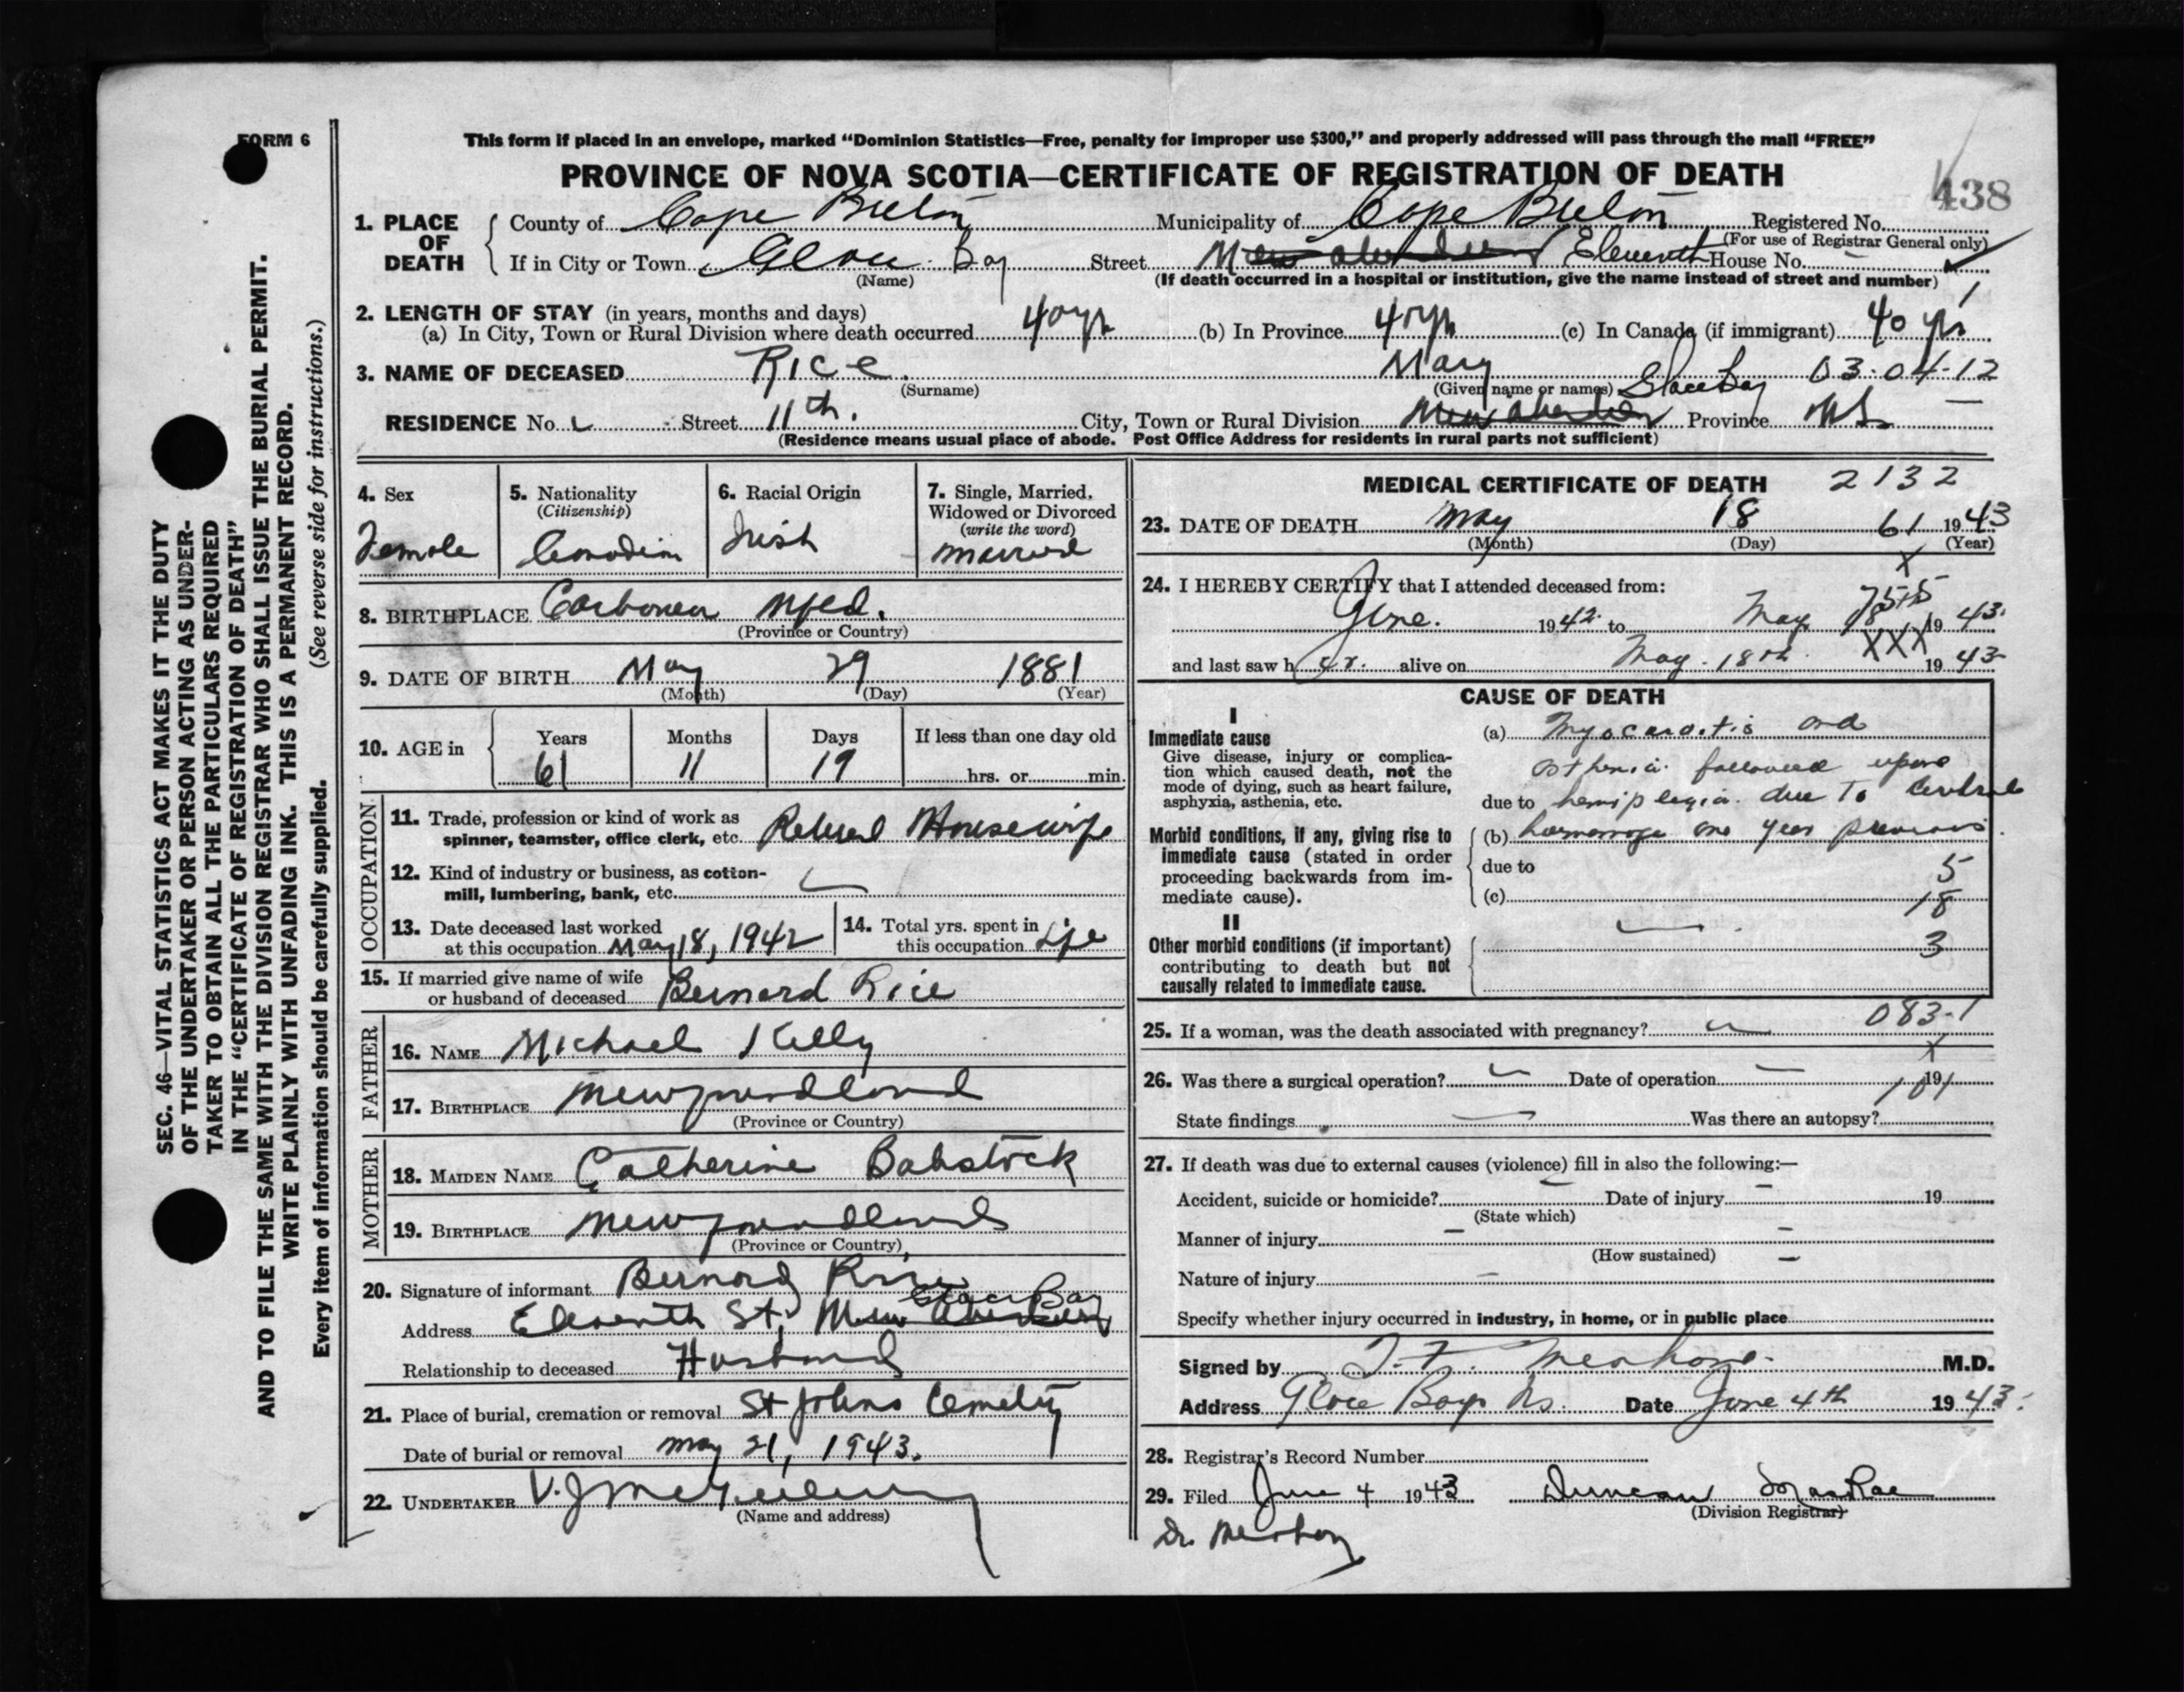 FORM 6
This form if placed in an envelope, marked “Dominion Statistics—Free, penalty for improper use $300,” and properly addressed will pass through the mail “FREE”
PROVINCE OF NOVA SCOTIA—CERTIFICATE OF REGISTRATION OF DEATH
438
1. PLACE OF DEATH
County of Cape Breton Municipality of Cape Breton Registered No.
(For use of Registrar General only)
If in City or Town Glace Bay Street New Aberdeen Eleventh House No.
(Name) (If death occurred in a hospital or institution, give the name instead of street and number)
2. LENGTH OF STAY (in years, months and days)
(a) In City, Town or Rural Division where death occurred 40 yr (b) In Province 40 yr (c) In Canada (if immigrant) 40 yrs
3. NAME OF DECEASED Rice Mary 03-04-12
(Surname) (Given name or names) Glace Bay
RESIDENCE No. Street 11th. City, Town or Rural Division New Aberdeen Province NS
(Residence means usual place of abode. Post Office Address for residents in rural parts not sufficient)
SEC. 46—VITAL STATISTICS ACT MAKES IT THE DUTY
OF THE UNDERTAKER OR PERSON ACTING AS UNDER-
TAKER TO OBTAIN ALL THE PARTICULARS REQUIRED
IN THE “CERTIFICATE OF REGISTRATION OF DEATH”
AND TO FILE THE SAME WITH THE DIVISION REGISTRAR WHO SHALL ISSUE THE BURIAL PERMIT.
WRITE PLAINLY WITH UNFADING INK. THIS IS A PERMANENT RECORD.
Every item of information should be carefully supplied. (See reverse side for instructions.)
4. Sex
Female
5. Nationality
(Citizenship)
Canadian
6. Racial Origin
Irish
7. Single, Married,
Widowed or Divorced
(write the word)
Married
8. BIRTHPLACE Carbonear Nfld.
(Province or Country)
9. DATE OF BIRTH May 29 1881
(Month) (Day) (Year)
10. AGE in
Years Months Days If less than one day old
61 11 19 hrs. or min.
OCCUPATION
11. Trade, profession or kind of work as
spinner, teamster, office clerk, etc. Retired Housewife
12. Kind of industry or business, as cotton-
mill, lumbering, bank, etc.
13. Date deceased last worked
at this occupation May 18, 1942
14. Total yrs. spent in
this occupation Life
15. If married give name of wife
or husband of deceased Bernard Rice
FATHER
16. NAME Michael Kelly
17. BIRTHPLACE Newfoundland
(Province or Country)
MOTHER
18. MAIDEN NAME Catherine Babstock
19. BIRTHPLACE Newfoundland
(Province or Country)
20. Signature of informant Bernard Rice
Glace Bay
Address Eleventh St, New Aberdeen
Relationship to deceased Husband
21. Place of burial, cremation or removal St Johns Cemetry
Date of burial or removal May 21, 1943.
22. UNDERTAKER V. J.
(Name and address)
MEDICAL CERTIFICATE OF DEATH 2132
23. DATE OF DEATH May 18 61 1943
(Month) (Day) (Year)
X
24. I HEREBY CERTIFY that I attended deceased from:
June. 1942 to May 18 1943.
XXX
and last saw her. alive on May. 18th 1943
CAUSE OF DEATH
I
Immediate cause
Give disease, injury or complica-
tion which caused death, not the
mode of dying, such as heart failure,
asphyxia, asthenia, etc.
(a) Myocarditis and
asthenia followed upon
due to hemiplegia due to Cerebral
Morbid conditions, if any, giving rise to
immediate cause (stated in order
proceeding backwards from im-
mediate cause).
(b) haemorrage one year previous.
due to 5
(c) 18
II
Other morbid conditions (if important)
contributing to death but not
causally related to immediate cause.
3
083-1
25. If a woman, was the death associated with pregnancy?
X
26. Was there a surgical operation? Date of operation 19
101
State findings Was there an autopsy?
27. If death was due to external causes (violence) fill in also the following:—
Accident, suicide or homicide? Date of injury 19
(State which)
Manner of injury
(How sustained)
Nature of injury
Specify whether injury occurred in industry, in home, or in public place
Signed by M.D.
Address Glace Bay Ns. Date June 4th 1943.
28. Registrar's Record Number
29. Filed June 4 1943 Duncan MacRae
(Division Registrar)
Dr.